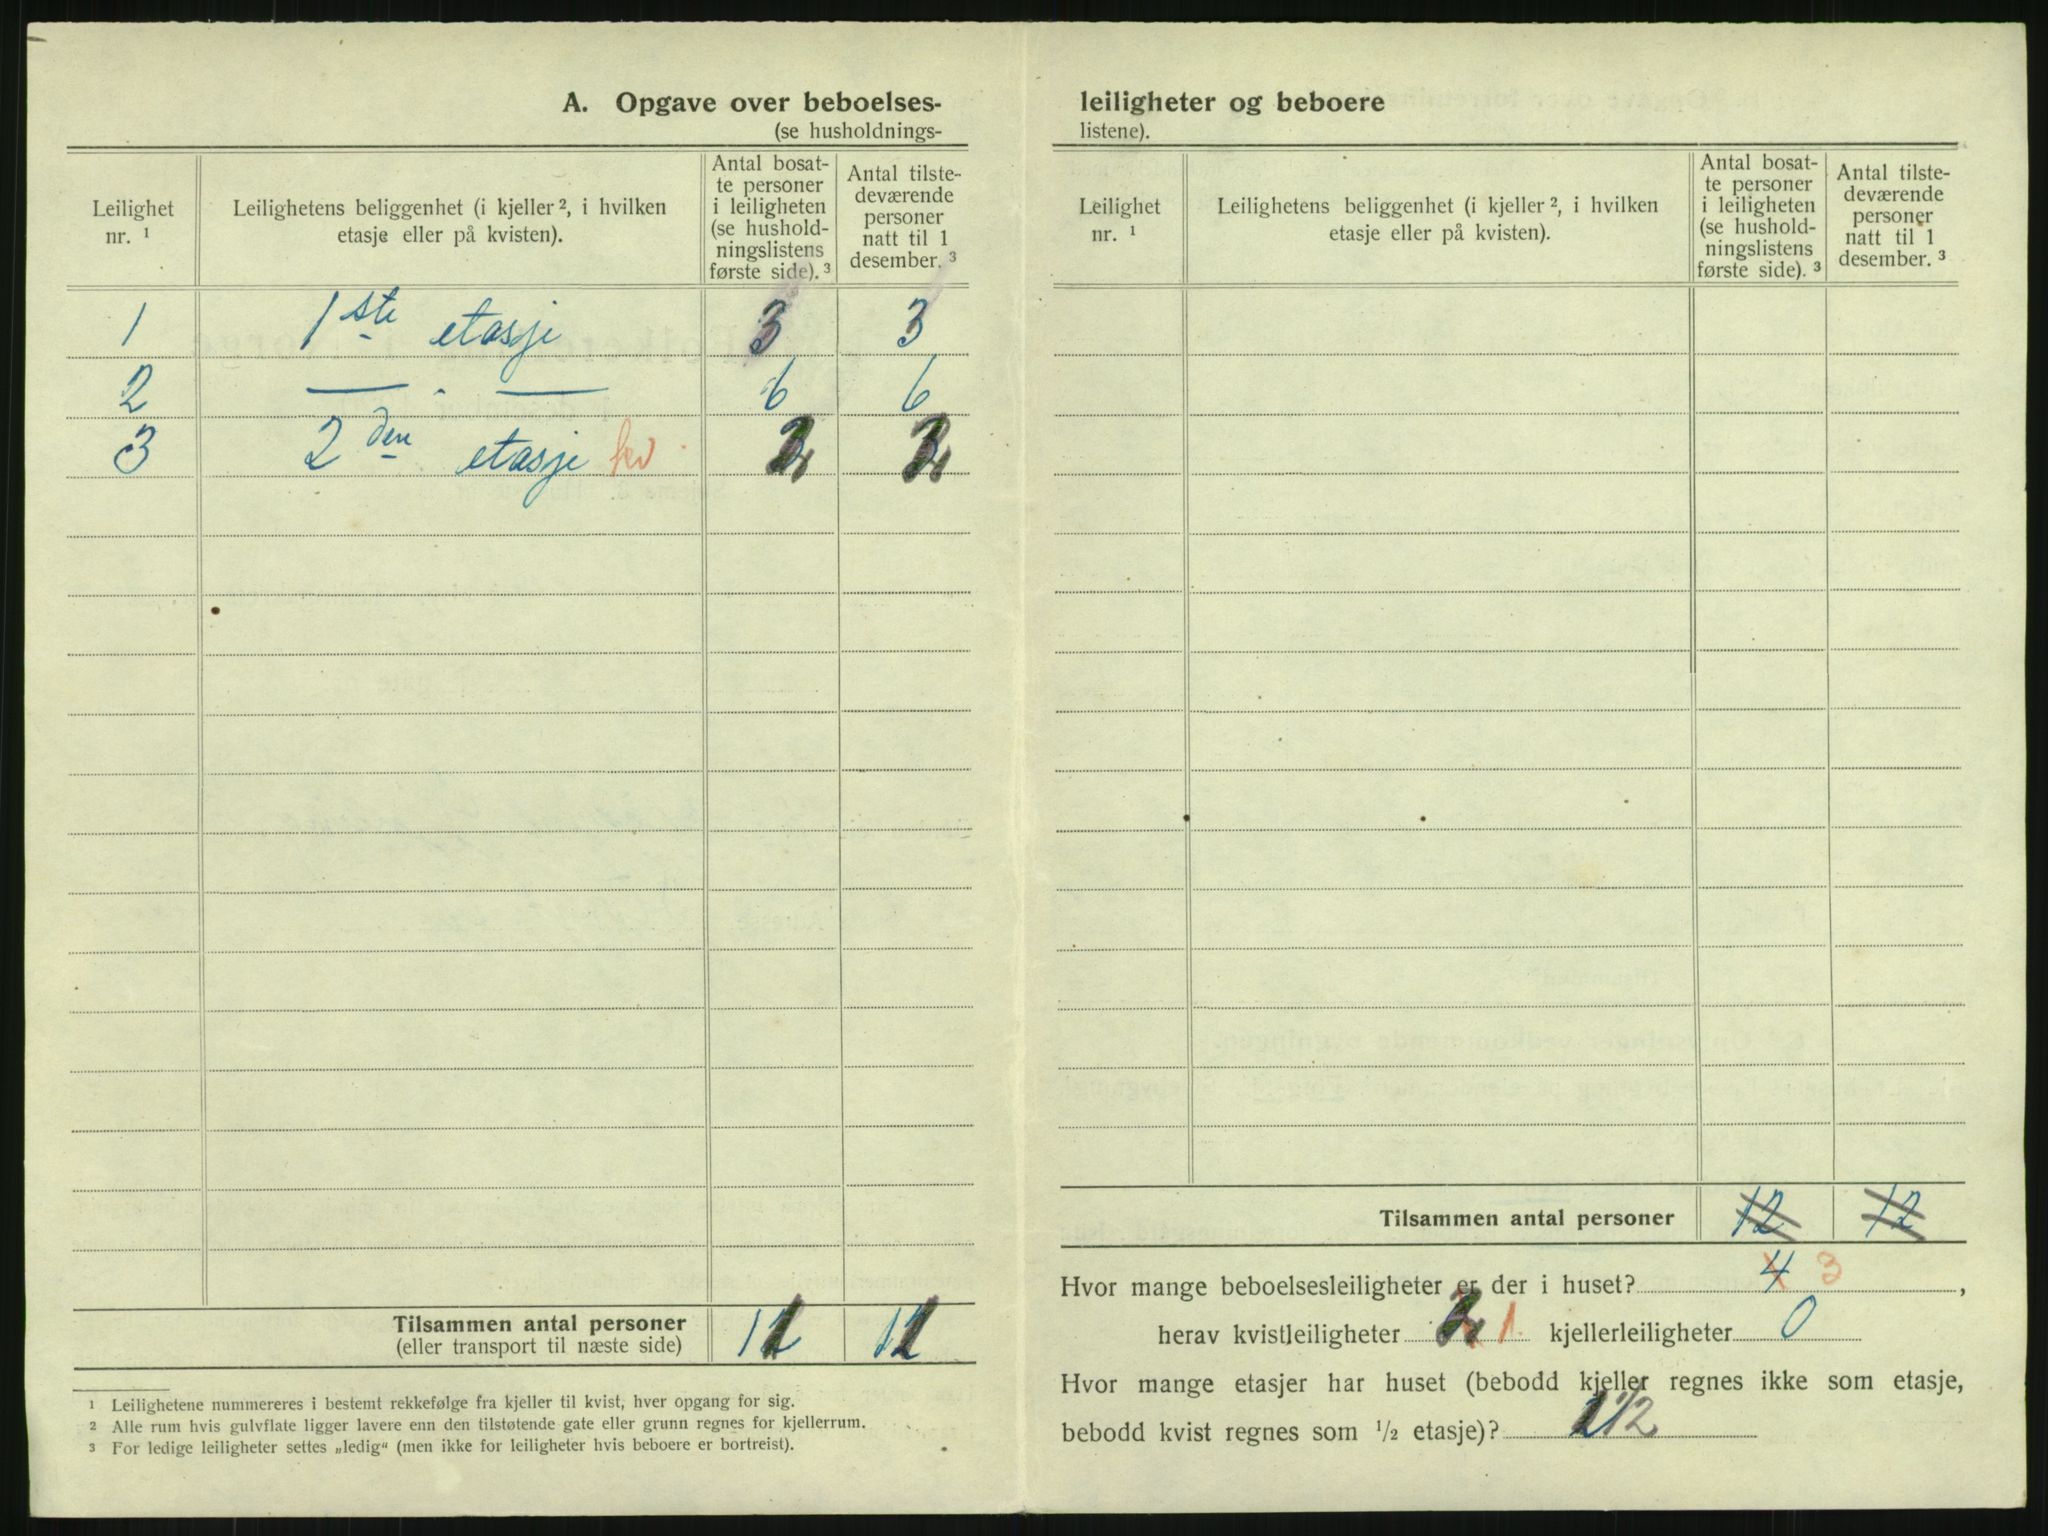 A. Opgave over beboelses-
(se husholdnings-
Leilighet
nr. 1
Leilighetens beliggenhet (i kjeller 2, i hvilken
etasje eller på kvisten).
Antal bosat-
te personer
i leiligheten
(se hushold-
ningslistens
første side). 3
Antal tilste-
deværende
personer
natt til 1
desember. 3
1 1ste etasje 3 3
2 — . — 6 6
3 2den etasje kv
Tilsammen antal personer
(eller transport til næste side)
1 Leilighetene nummereres i bestemt rekkefølge fra kjeller til kvist, hver opgang for sig.
2 Alle rum hvis gulvflate ligger lavere enn den tilstøtende gate eller grunn regnes for kjellerrum.
3 For ledige leiligheter settes „ledig“ (men ikke for leiligheter hvis beboere er bortreist).
leiligheter og beboere
listene).
Leilighet
nr. 1
Leilighetens beliggenhet (i kjeller 2, i hvilken
etasje eller på kvisten).
Antal bosat-
te personer
i leiligheten
(se hushold-
ningslistens
første side). 3
Antal tilste-
deværende
personer
natt til 1
desember. 3
Tilsammen antal personer 12 12
Hvor mange beboelsesleiligheter er der i huset? 4 3,
herav kvistleiligheter 1. kjellerleiligheter 0
Hvor mange etasjer har huset (bebodd kjeller regnes ikke som etasje,
bebodd kvist regnes som 1/2 etasje)? 1 1/2